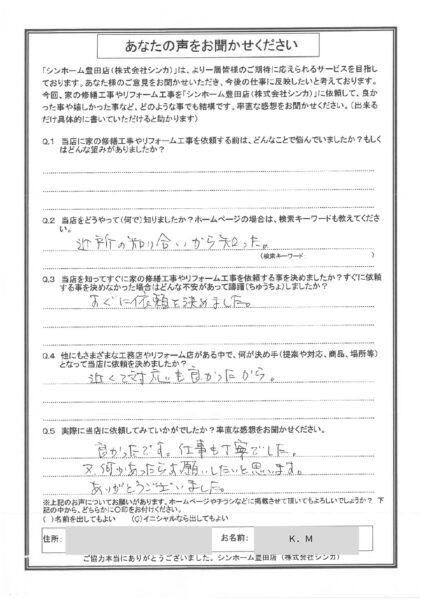 あなたの声をお聞かせください
「シンホーム豊田店(株式会社シンカ)」は、より一層皆様のご期待に応えられるサービスを目指し
ております。あなた様のご意見をお聞かせいただき、今後の仕事に反映したいと考えております。
今回、家の修繕工事やリフォーム工事を「シンホーム豊田店(株式会社シンカ)」に依頼して、良か
った事や嬉しかった事など、どのような事でも結構です。率直な感想をお聞かせください。(出来る
だけ具体的に書いていただけると助かります)
Q.1 当店に家の修繕工事やリフォーム工事を依頼する前は、どんなことで悩んでいましたか?もしく
はどんな望みがありましたか?
Q.2 当店をどうやって(何で)知りましたか?ホームページの場合は、検索キーワードも教えてくださ
い。
近所の知り合いから知った。
(検索キーワード )
Q.3 当店を知ってすぐに家の修繕工事やリフォーム工事を依頼する事を決めましたか?すぐに依頼
する事を決めなかった場合はどんな不安があって躊躇(ちゅうちょ)しましたか?
すぐに依頼を決めました。
Q.4 他にもさまざまな工務店やリフォーム店がある中で、何が決め手(提案や対応、商品、場所等)
となって当店に依頼を決めましたか?
近くて対応も良かったから。
Q.5 実際に当店に依頼してみていかがでしたか?率直な感想をお聞かせください。
良かったです。仕事も丁寧でした。
又、何かあったらお願いしたいと思います。
ありがとうございました。
※上記のお声についてお願いがあります。ホームページやチラシなどに掲載させて頂いてもよろしいでしょうか? 下
記の中から、どちらかに〇印をお付けください。
( )名前を出してもよい (〇)イニシャルなら出してもよい
住所: お名前: K.M
ご協力本当にありがとうございました。シンホーム豊田店 (株式会社シンカ)